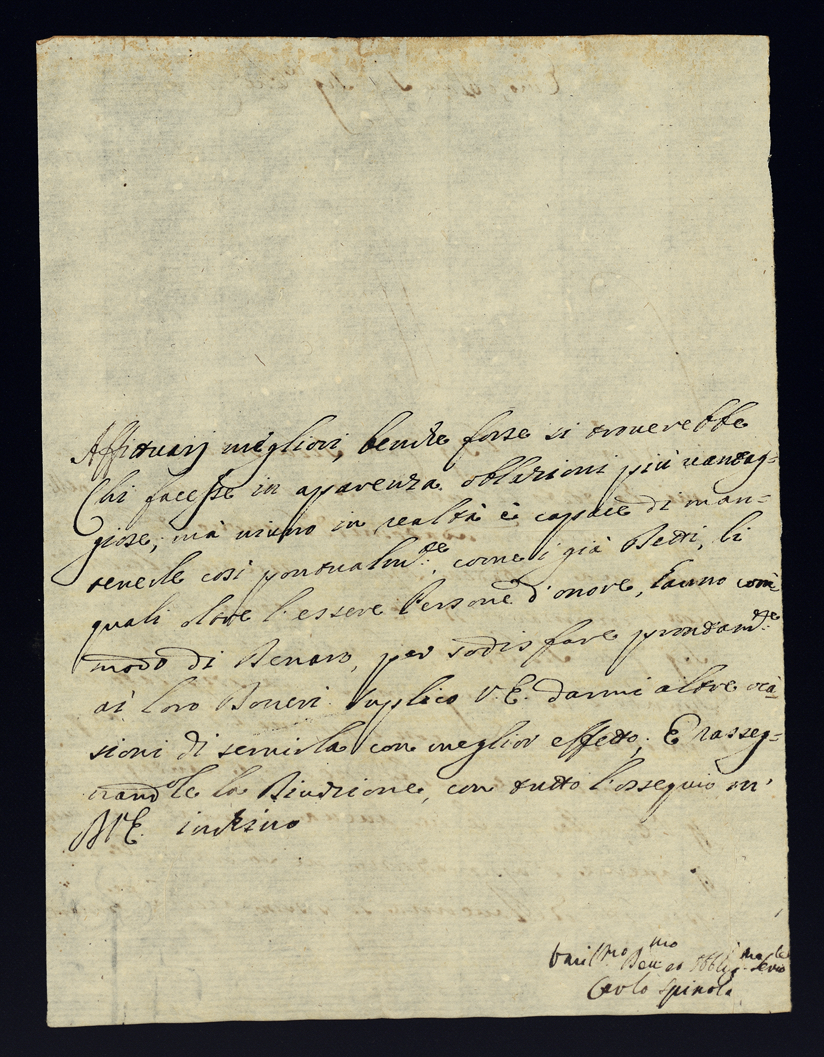 Affittuarj migliori, benche forse si trouerebbe
Chi facesse in aparenza oblazioni più uantag=
giose, mà niuno in realtà è capace di man=
tenerle così pontualm.te come i già detti, li
quali oltre l'essere Persone d'onore, hanno com=
modo di Denaro, per sodisfare prontam.te
ai loro Doueri. Suplico V.E. darmi altre oca=
sioni di seruirla con meglior effetto, E rasseg=
nandole la Diuozione, con tutto l'ossequio m'
D V.E. inchino
Vmil.mo Deu.mo Obblig.
Carlo Spinola